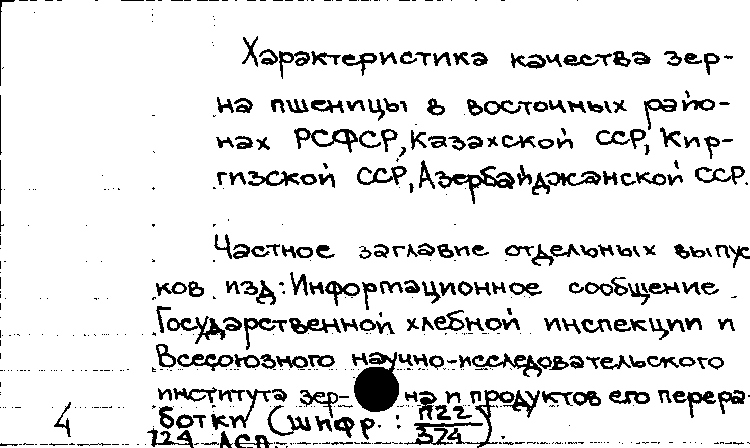 Характеристика качества зер-
на пшеницы в восточных райо-
нах РСФСР, Казахской ССР, Кир-
гизской ССР, Азербайджанской ССР.
Частное заглавие отдельных выпус
ков изд: Информационное сообщение
Государственной хлебной инспекции и
Всесоюзного научно-исследовательского
института зер- на и продуктов его перера-
4 ботки (шифр. : П22/374).
124 АСП.